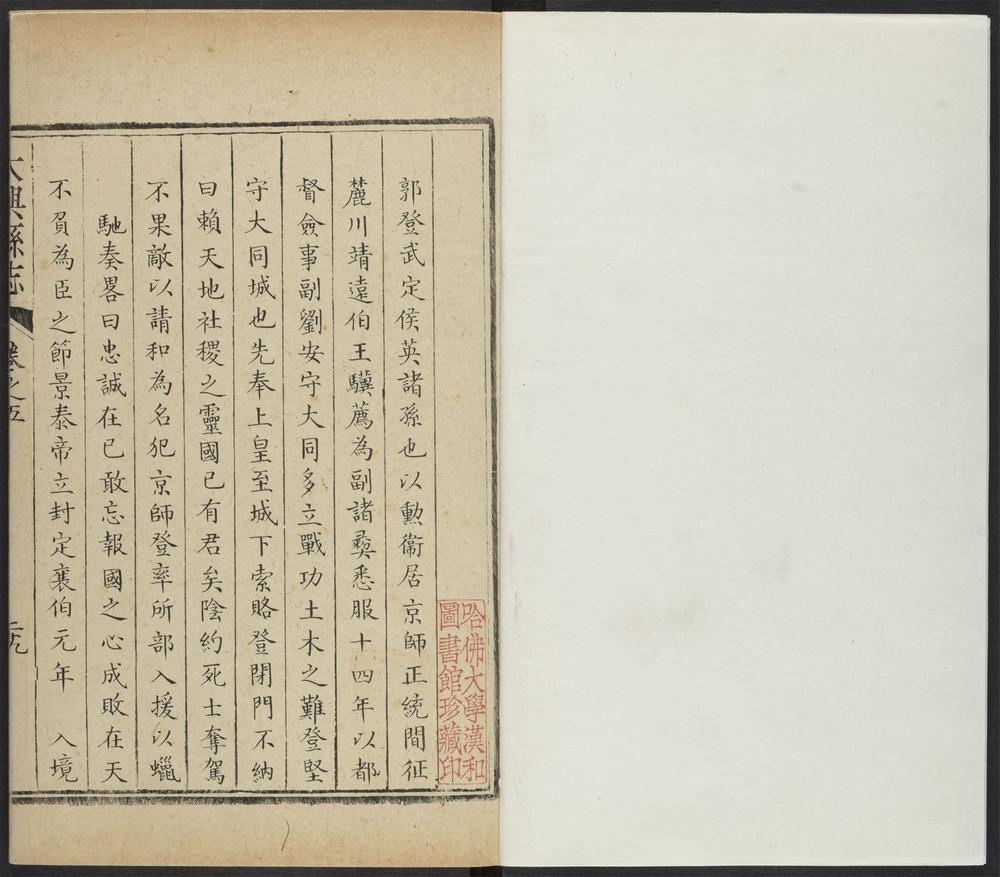 哈佛大學漢和
圖書館珍藏印
郭登武定侯英諸孫也以勳衞居京師正統間征
麓川靖遠伯王驥薦為副諸彝悉服十四年以都
督僉事副劉安守大同多立戰功土木之難登堅
守大同城也先奉上皇至城下索賂登閉門不納
曰賴天地社稷之靈國已有君矣陰約死士奪駕
不果敵以請和為名犯京師登率所部入援以蠟
馳奏畧曰忠誠在已敢忘報國之心成敗在天
不負為臣之節景泰帝立封定襄伯元年 入境
大興縣志 卷之五 二九